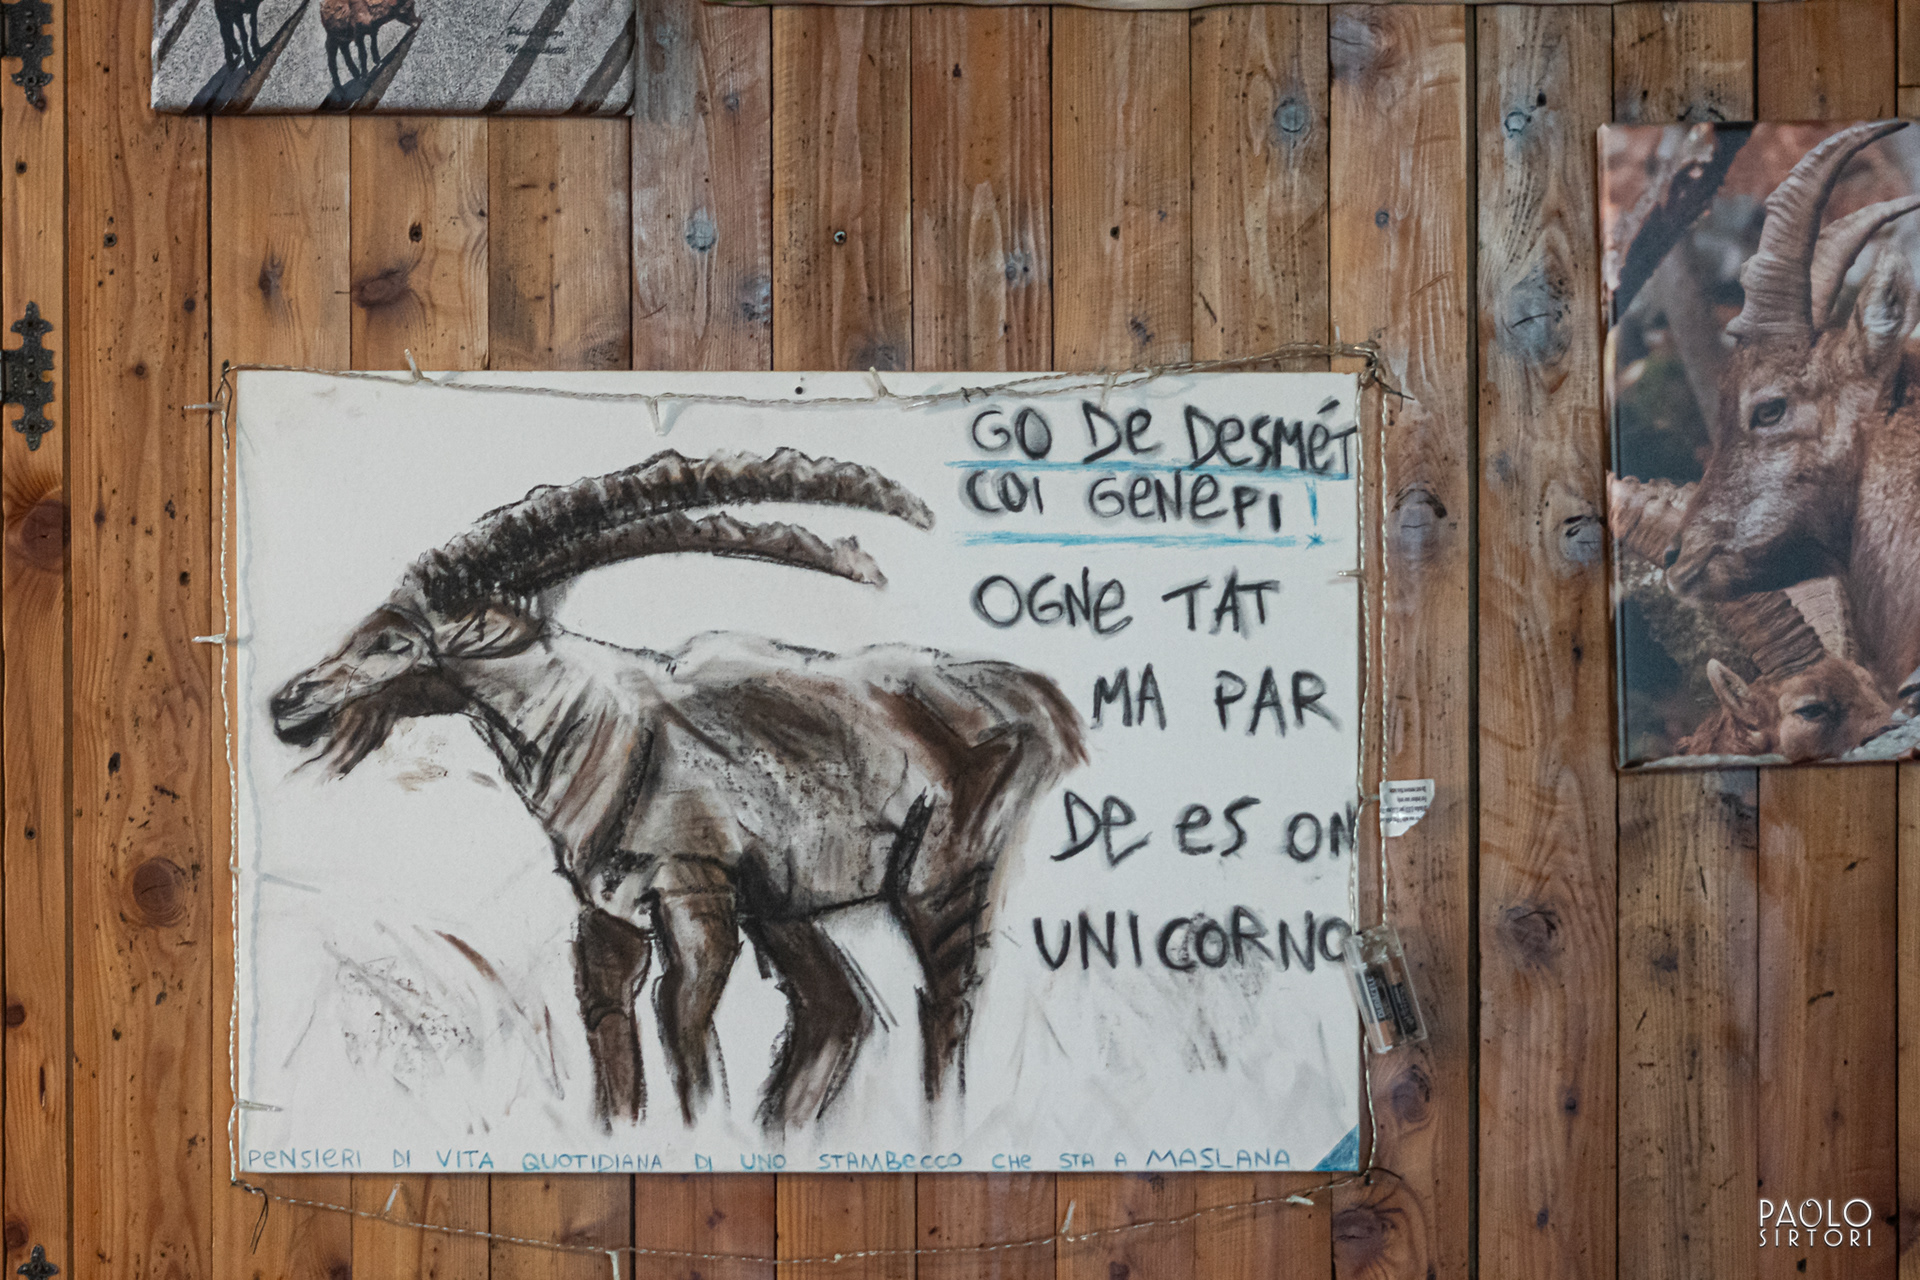 GO De DesMéT
COI GeNePI!
OGNe TAT
MA PAR
De es ON
UNICORNO
PeNSIeRI DI VITA QUOTIDIANA DI UNO STAMBeCCO CHe STA A MASLANA
PAOLO
SIRTORI